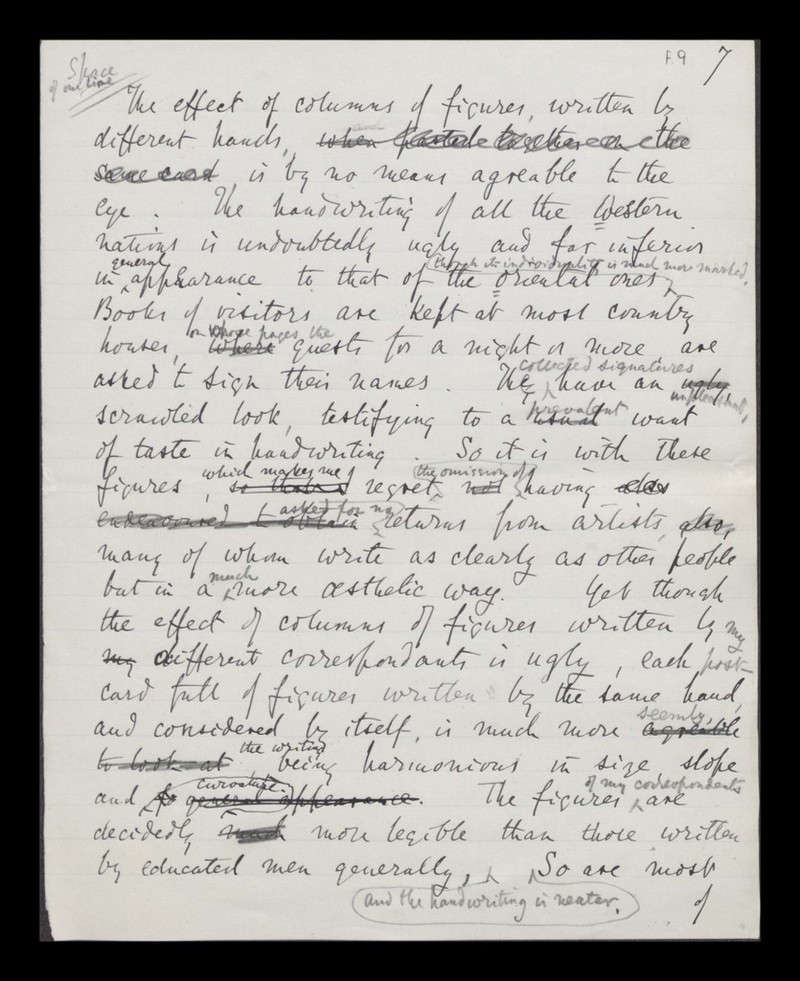 F.9 7
Space
of one line
The effect of columns of figures, written by
different hands, when pasted together on the
same card is by no means agreable to the
eye. The handwriting of all the Western
nations is undoubtedly ugly and far inferior
general (though its individuality is much more marked.
in appearance to that of the oriental ones
Books of visitors are kept at most country
on whose pages, the
houses, where guests for a night or more are
collected signatures
asked to sign their names. They have an ugly,
unpleasant,
prevalent
scrawled look, testifying to a usual want
of taste in handwriting. So it is with these
which makes me (the omission of
figures, so that I regret not having also
asked for no
endeavoured to obtain returns from artists, also,
many of whom write as clearly as other people
much
but in a more æsthetic way. Yet though
the effect of columns of figures written by my
my different correspondants is ugly, each post-
card full of figures written by the same hand,
seemly,
and considered by itself, is much more agreable
the writing
to look at being harmonious in size slope
curvature. of my correspondents
and general appearance. The figures are
decidedly much more legible than those written
by educated men generally, So are most
(and the handwriting is neater.) of